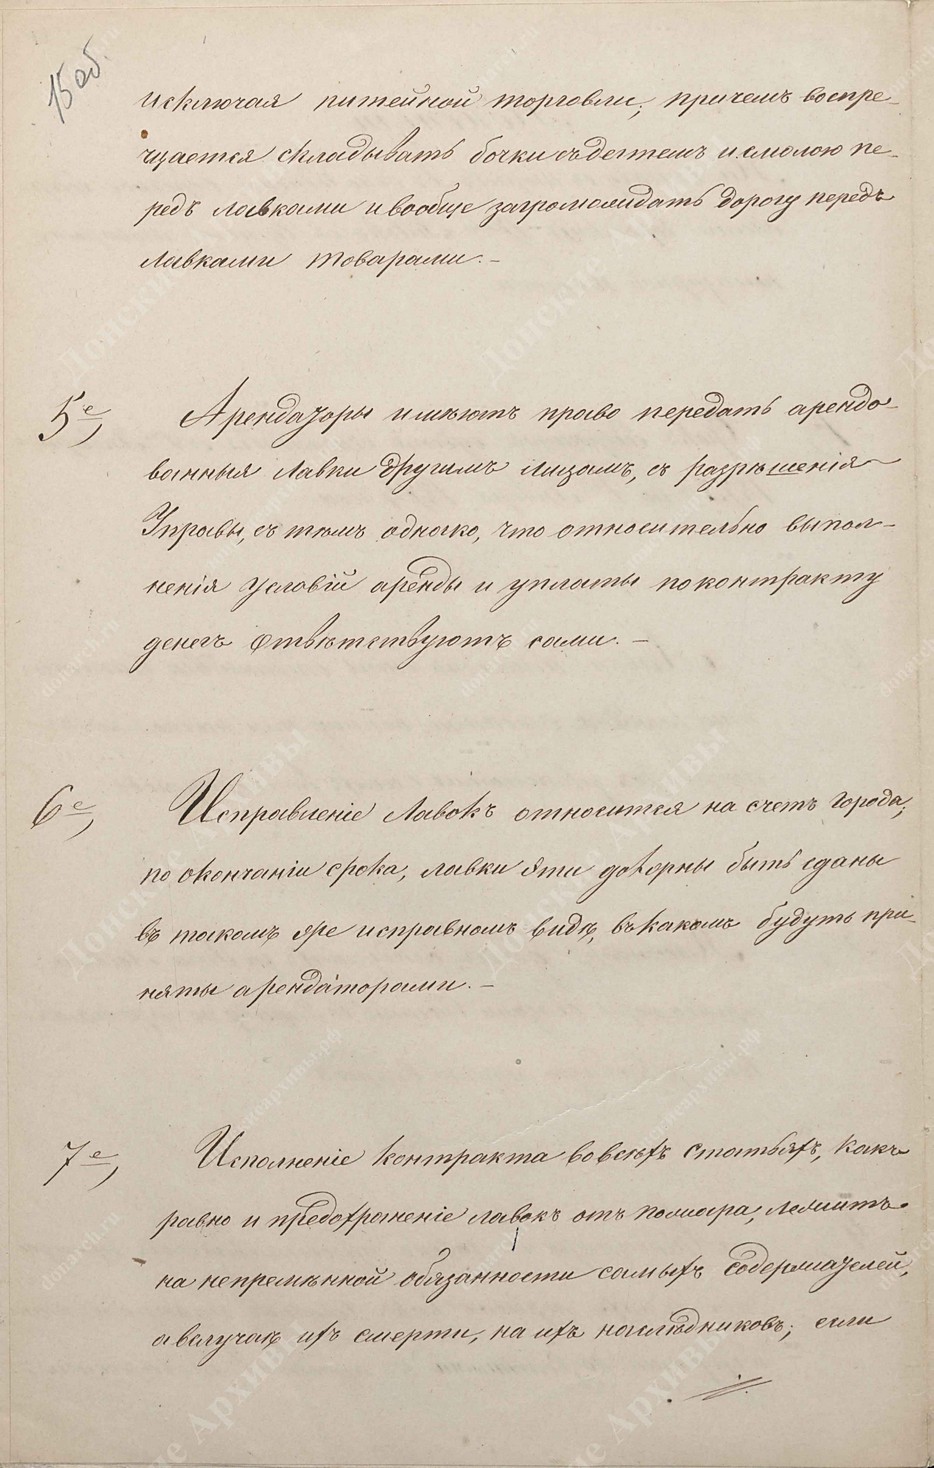 15 об.
исключая питейной торговли; причемъ воспре-
щается складывать бочки съ дегтемъ и смолою пе-
редъ лавками и вообще загромождать дорогу передъ
лавками товарами. —
5е, Арендаторы имѣютъ право передать арендо-
ванныя лавки другимъ лицамъ, съ разрѣшенія
Управы, съ тѣмъ однако, что относительно выпол-
ненія условій аренды и уплаты по контракту
денегъ отвѣтствуютъ сами. —
6е, Исправленіе лавокъ относится на счетъ города;
по окончаніи срока, лавки эти должны быть сданы
въ такомъ же исправномъ видѣ, въ какомъ будутъ при-
няты арендаторами. —
7е, Исполненіе контракта во всѣхъ статьяхъ, какъ
равно и предохраненіе лавокъ отъ пожара, лежитъ
на непремѣнной обязанности самыхъ содержателей,
а въ случаѣ ихъ смерти, на ихъ наслѣдниковъ; если